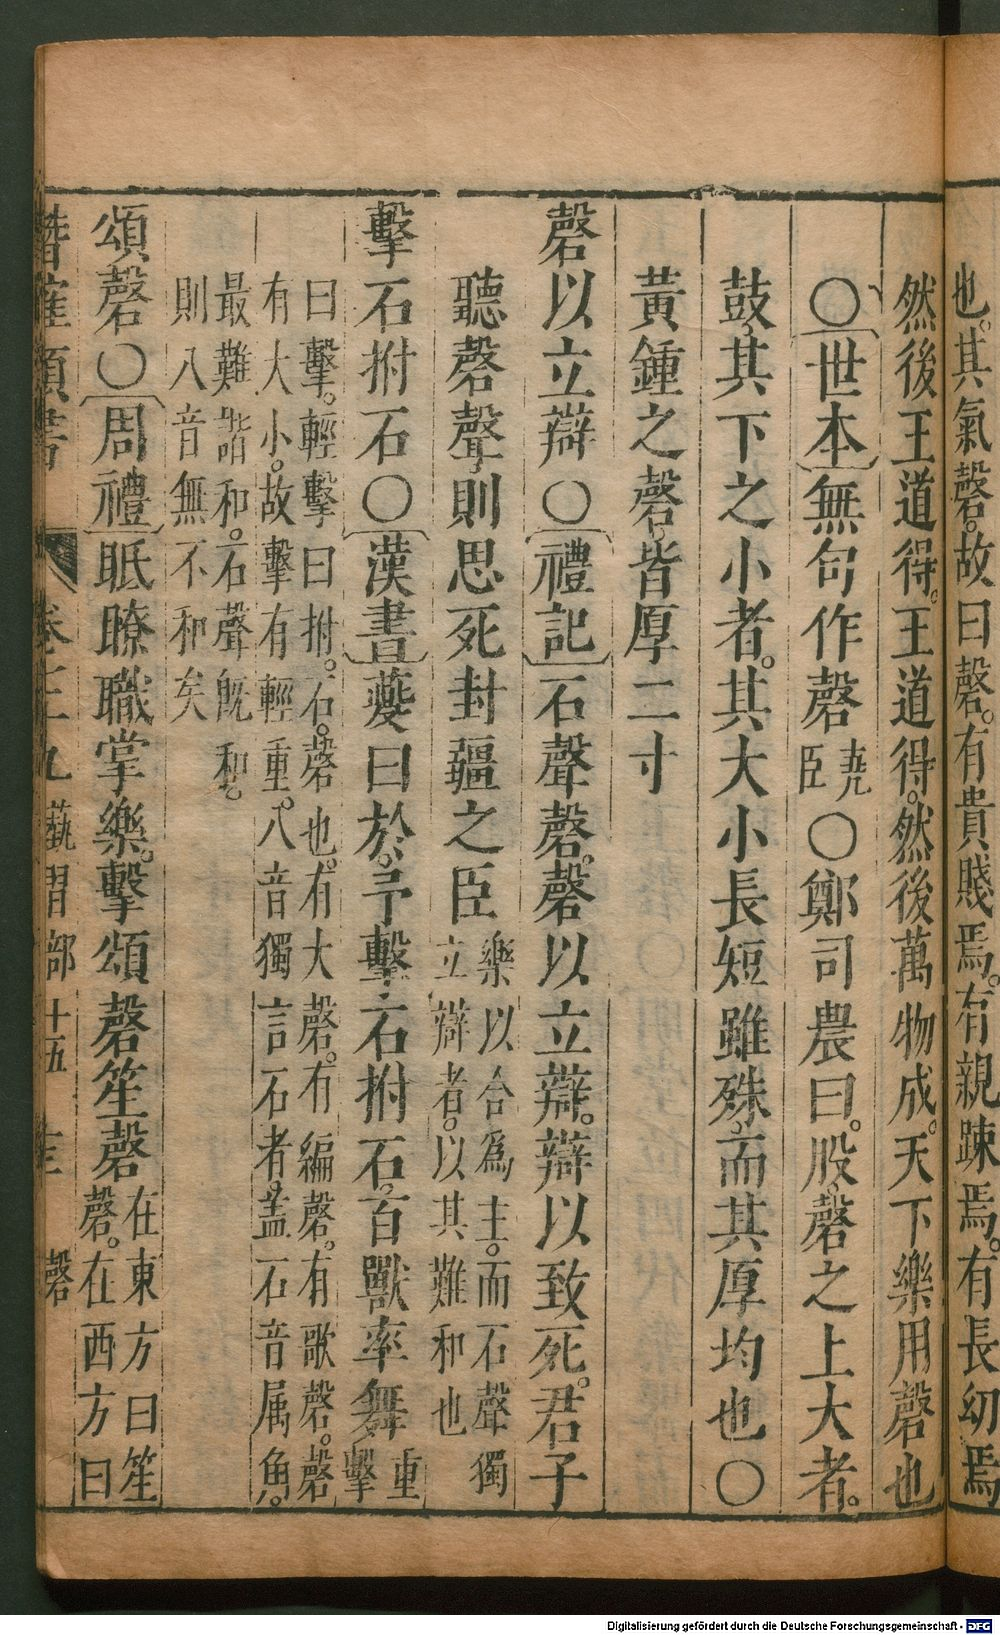 也。其氣磬。故曰磬。有貴賤焉。有親踈焉。有長幼焉
然後王道得。王道得。然後萬物成。天下樂用磬也
〇世本無句作磬堯臣〇鄭司農曰。股。磬之上大者。
鼓。其下之小者。其大小長短雖殊。而其厚均也〇
黃鍾之磬。皆厚二寸
磬以立辯〇禮記石聲磬。磬以立辯。辯以致死。君子
聽磬聲。則思死封疆之臣樂以合為主。而石聲獨立辯者。以其難和也
擊石拊石〇漢書夔曰於。予擊石拊石。百獸率舞重擊
曰擊。輕擊曰拊。石。磬也。有大磬。有編磬。有歌磬。磬
有大小。故擊有輕重。八音獨言石者。盖石音属角。
最難諧和。石聲旣和。
則八音無不和矣
頌磬〇周禮眡瞭職掌樂。擊頌磬笙磬在東方曰笙磬。在西方曰
卷之 九 藝習部十五 磬
Digitalisierung gefördert durch die Deutsche Forschungsgemeinschaft - DFG